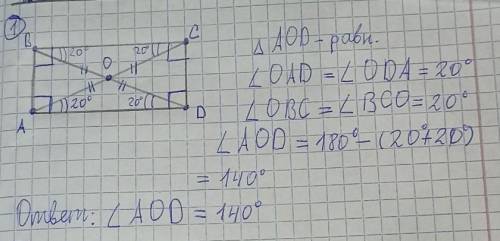 1
B
20°
20°
C
O
A
20°
20°
D
△ AOD - равн.
∠OAD = ∠ODA = 20°
∠OBC = ∠BCO = 20°
∠AOD = 180° - (20°+20°)
= 140°
Ответ: ∠AOD = 140°